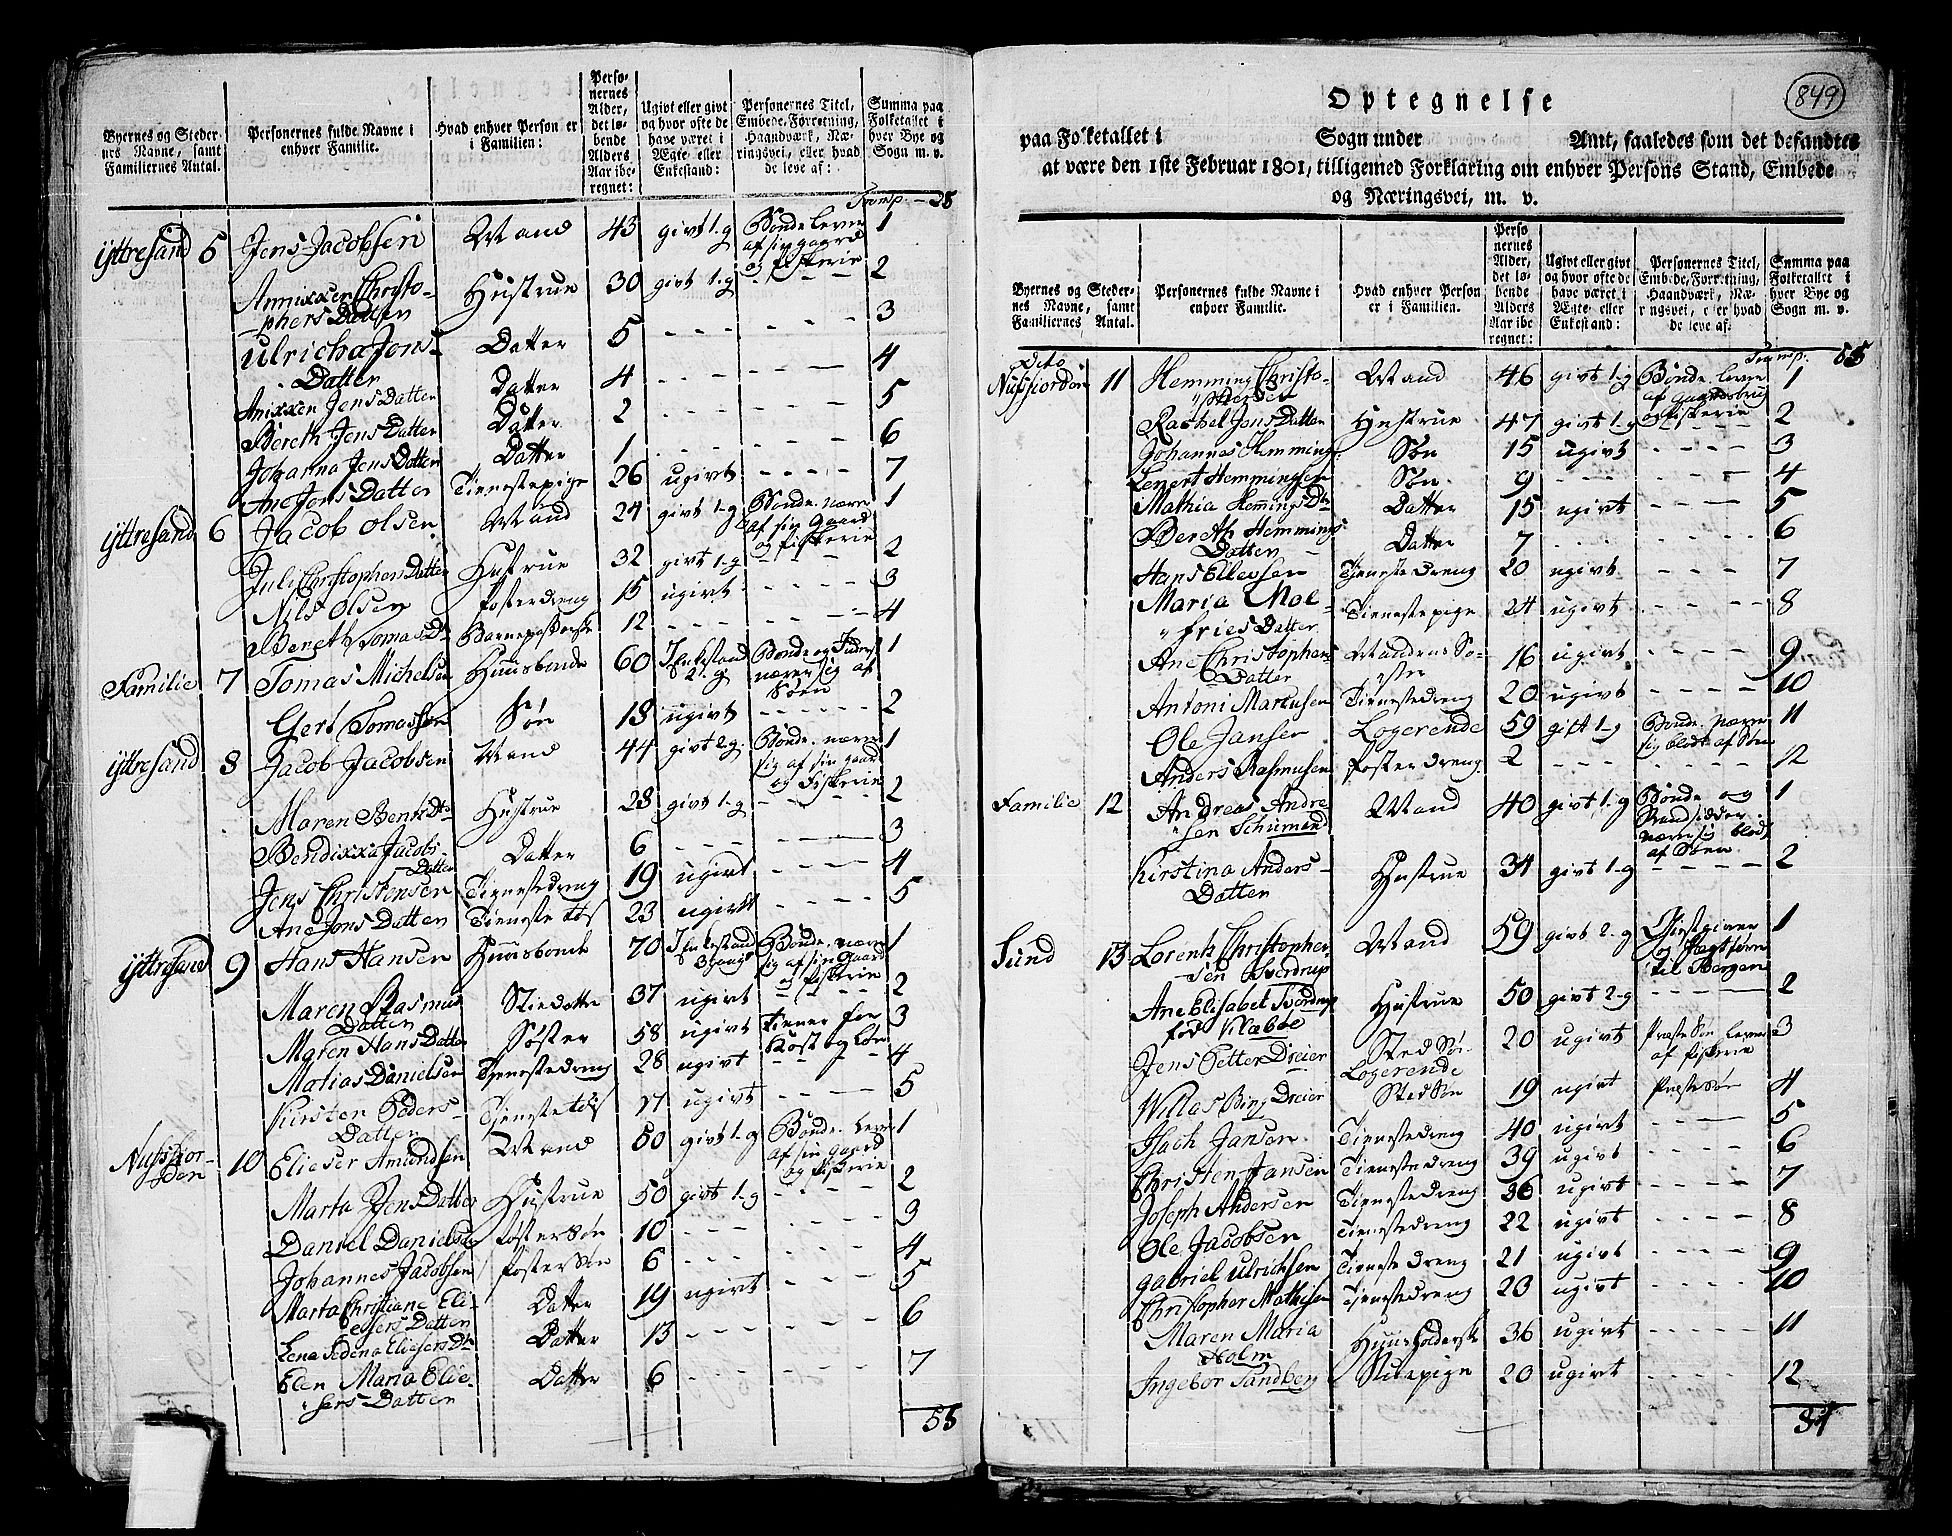 Byernes og Stedernes Navne, samt Familiernes Antal.
Personernes fulde Navne i enhver Familie.
Hvad enhver Person er i Familien:
Personernes Alder, det løbende Alders Aar iberegnet:
Ugivt eller givt og hvor ofte de have været i Ægte- eller Enkestand:
Personernes Titel, Embede, Forretning, Haandværk, Næringsvei, eller hvad de leve af:
Summa paa Folketallet i hver Bye og Sogn m. v.
Transp. - 28
ÿttresand 5 Jens Jacobsen Mand 43 givt 1-g Bonde. Lever af sin gaard og fiskerie 1
Annixxen Christophers Datter Hustrue 30 givt 1-g - - - 2
Ulricha Jens Datter Datter 5 - - - 3
Anixxen Jens Datter Datter 4 - - - 4
Bereth Jens Datter Datter 2 - - - 5
Johanna Jens Datter Datter 1 - - - 6
Ane Jons Datter Tienestepige 26 ugivt - - - 7
ÿttresand 6 Jacob Olsen Mand 24 givt 1-g Bonde. nære af sin Gaard og fiskerie 1
Juli Christophers Datter Hustrue 32 givt 1-g - - - 2
Nils Olsen fosterdreng 15 ugivt - - - 3
Bereth Tomas Dtr 12 - - - 4
Familie 7 Tomas Michelsen Huusbonde 60 Enkestand 2. g Bonde og nærer sig af Søen 1
Gert Tomassen Søn 18 ugivt - - - 2
ÿttresand 8 Jacob Jacobsen Mand 44 givt 2-g. Bonde. nære sig af sin gaard og fiskerie 1
Maren Bents Dtr Hustrue 28 givt 1-g - - - 2
Bendixxa Jacobs Datter Datter 6 - - - 3
Jens Christensen Tienestedreng 19 ugivt - - - 4
Ane Jons Datter Tieneste tøs 23 ugivt - - - 5
ÿttresand 9 Hans Hansen Huusbonde 70 Enkestand 3 gang Bonde. nære sig af sin Gaard og fiskerie 1
Maren Rasmus Datter Stiedatter 37 ugivt - - - 2
Maren Hans Datter Søster 58 ugivt tiener for Kost og Løn 3
Matias Danielsen Tjenestedreng 28 ugivt - - - 4
Kirsten Peders Datter Tjeneste tøs 17 ugivt - - - 5
Nussfiorden 10 Elieser Amundsen Mand 50 givt 1-g Bonde. lever af sin gaard og fiskerie 1
Marta Jens Datter Hustrue 50 givt 1-g - - - 2
Daniel Danielsen foster Søn 10 - - - 3
Johannes Jacobsen foster Søn 6 - - - 4
Marta Christiane Eliesers Datter Datter 19 ugivt - - - 5
Lena Sedena Eliesers Dtr Datter 13 - - - 6
Elen Maria Eliesers Datter Datter 6 - - - 7
55
849
Optegnelse
paa Folketallet i Sogn under Amt, saaledes som det befandtes
at være den 1ste Februar 1801, tilligemed Forklaring om enhver Persons Stand, Embede
og Næringsvei, m. v.
Byernes og Stedernes Navne, samt Familiernes Antal.
Personernes fulde Navne i enhver Familie.
Hvad enhver Person er i Familien.
Personernes Alder, det løbende Alders Aar iberegnet:
Ugivt eller givt og hvor ofte de have været i Ægte- eller Enkestand:
Personernes Titel, Embede, Forretning, Haandværk, Næringsvei, eller hvad de leve af:
Summa paa Folketallet i hver Bye og Sogn m. v.
Transp. 55
Dito Nufsfiorden 11 Hemming Christophersen Mand 46 givt 1-g Bonde. lever af gaardsbrug og fiskerie 1
Rachel Jons Datter Hustrue 47 givt 1-g - - - 2
Johannes Hemming Søn 15 ugivt - - - 3
Lenert Hemmingsen Søn. 9 - - - 4
Mathia Hemmings Dtr Datter 15 ugivt - - - 5
Bereth Hemmings Datter Datter 7 - - - 6
Hans Ellevsen Tjenestedreng 20 ugivt - - - 7
Maria Molfries Datter Tienestepige 24 ugivt - - - 8
Ane Christophers Datter Mandens Søster 16 ugivt - - - 9
Antoni Martusen Tienestedreng 20 ugivt - - - 10
Ole Jansen Logerende 59 gift 1-g Bonde. nære sig blot af Søen 11
Anders Rasmusen fosterdreng 2 - - - 12
Familie 12 Andreas Andresen Schumand Mand 40 givt 1-g Bonde og Strandsidder nære sig blot af Søen. 1
Kirstina Anders Datter Hustrue 34 givt 1-g - - - 2
Sund 13 Lorents Christophersen Sverdrup Mand 59 givt 2-g Giestgiver og Jægtfører til Bergen 1
Ane Elisabet Sverdrup fød Klæboe Hustrue 50 givt 2-g - - - 2
Jens Petter Dreier Sted Søn Logerende 20 ugivt Præste Søn lever af fiskerie 3
Willas Bing Dreier Sted Søn 19 ugivt Præste Søn 4
Isach Jansen Tienestedreng 40 ugivt - - - 5
Christen Jansen Tienestedreng 39 ugivt - - - 6
Joseph Andersen Tienestedreng 36 ugivt - - - 7
Ole Jacobsen Tienestedreng 22 ugivt - - - 8
Gabriel Ulrichsen Tienestedreng 21 ugivt - - - 9
Christopher Mathisen Tjenestedreng 20 ugivt - - - 10
Maren Maria Holm Huusholderske 36 ugivt - - - 11
Ingebor Sandberg Stuepige 20 ugivt - - - 12
81